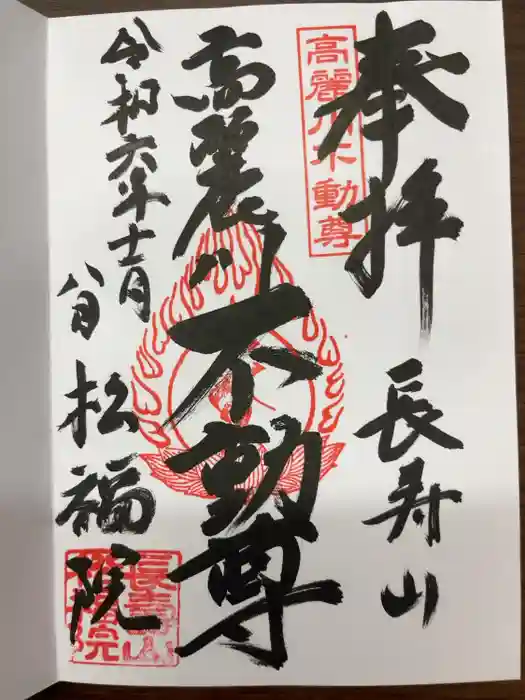 奉拝
長寿山
高麗川不動尊
高麗川不動尊
令和六年十二月
八日
松福院
長寿山
松福院